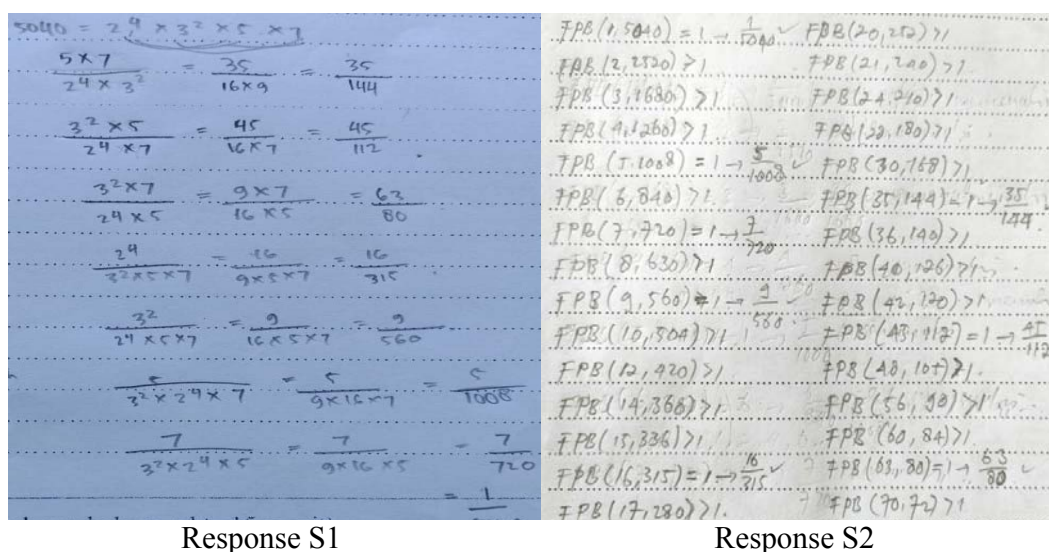 5040 = 2⁴ × 3² × 5 × 7
5×7 / 2⁴ × 3² = 35 / 16×9 = 35 / 144
3² × 5 / 2⁴ × 7 = 45 / 16×7 = 45 / 112
3² × 7 / 2⁴ × 5 = 9 × 7 / 16 × 5 = 63 / 80
2⁴ / 3² × 5 × 7 = 16 / 9×5×7 = 16 / 315
3² / 2⁴ × 5 × 7 = 9 / 16 × 5 × 7 = 9 / 560
5 / 3² × 2⁴ × 7 = 5 / 9×16×7 = 5 / 1008
7 / 3² × 2⁴ × 5 = 7 / 9×16×5 = 7 / 720
= 1
Response S1
FPB (1,5040) = 1 → 1/5040 ✓
FPB (2,2520) >1
FPB (3,1680) >1
FPB (4,1260) >1
FPB (5,1008) = 1 → 5/1008 ✓
FPB (6,840) >1
FPB (7,720) = 1 → 7/720
FPB (8,630) >1
FPB (9,560) = 1 → 9/560 ✓
FPB (10,504) >1
FPB (12,420) >1
FPB (14,360) >1
FPB (15,336) >1
FPB (16,315) = 1 → 16/315 ✓
FPB (17,280) >1
FPB (20,252) >1
FPB (21,240) >1
FPB (24,210) >1
FPB (30,168) >1
FPB (35,144) = 1 → 35/144 ✓
FPB (36,140) >1
FPB (40,126) >1
FPB (42,120) >1
FPB (45,112) = 1 → 45/112
FPB (48,105) >1
FPB (56,90) >1
FPB (60,84) >1
FPB (63,80) = 1 → 63/80 ✓
FPB (70,72) >1
Response S2